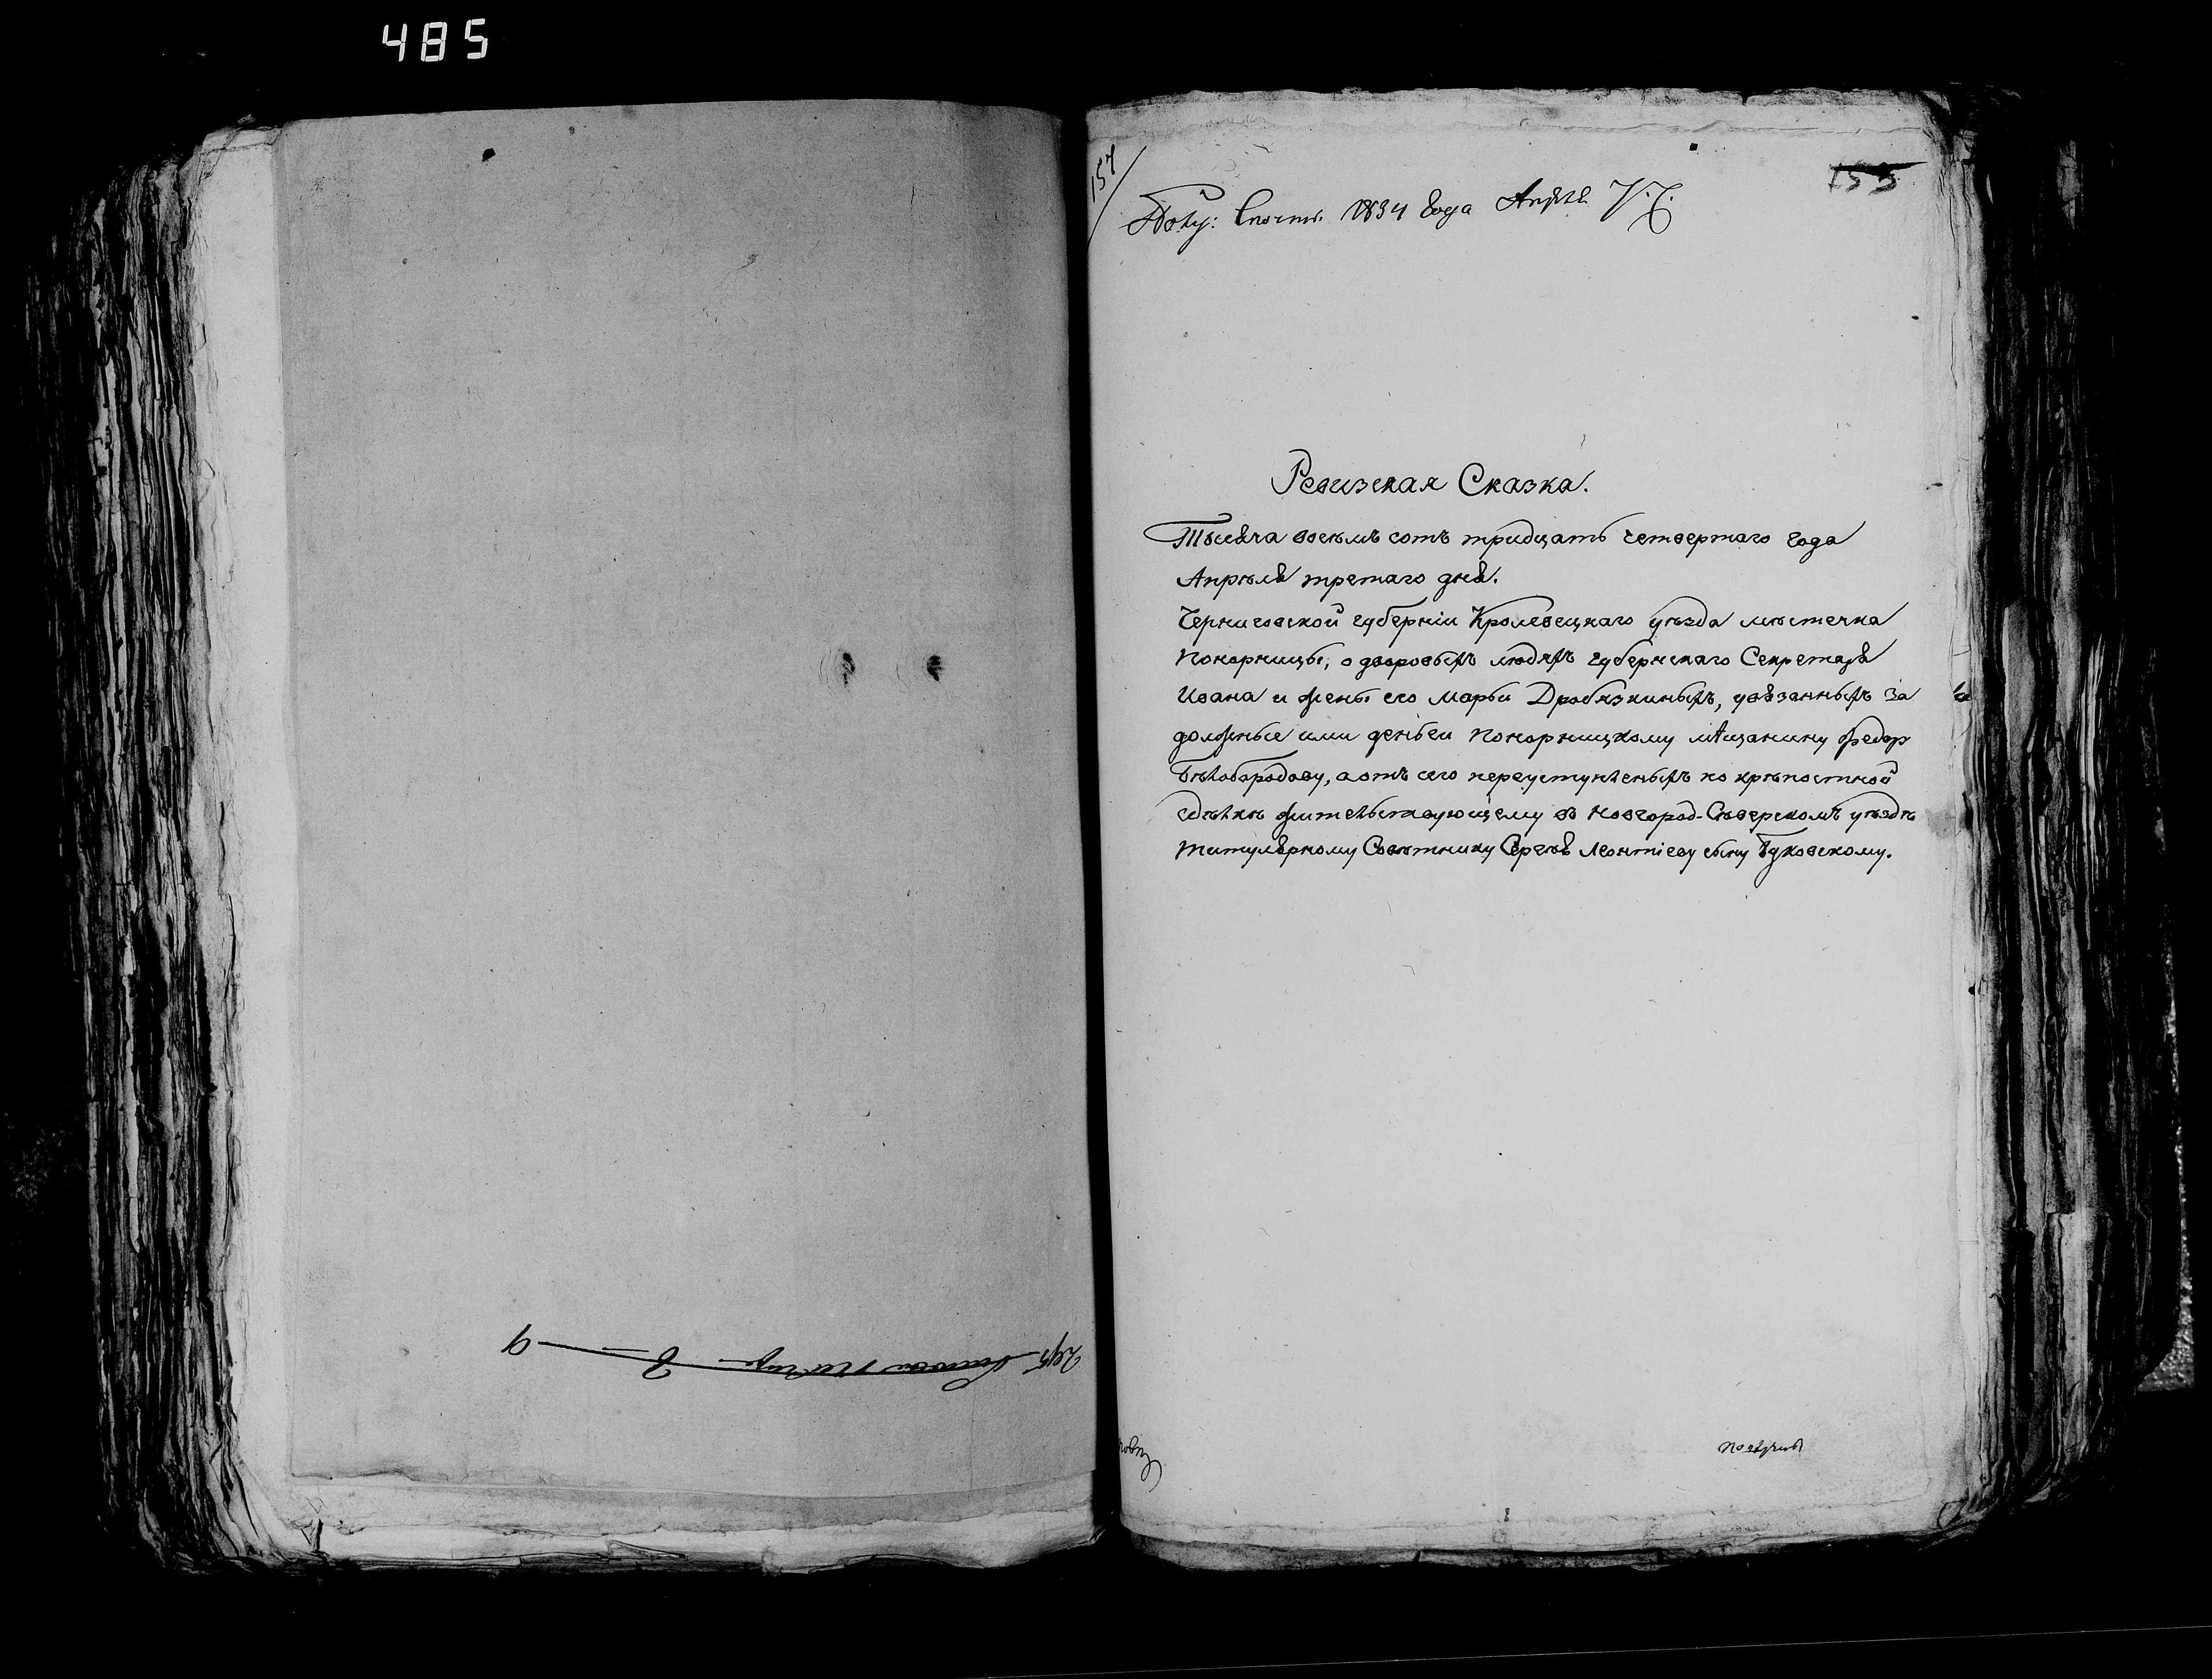 485
157
155
1834 года
Ревизская Сказка.
Тысяча восемъ сотъ тридцать четвертаго года
Апрѣля третаго дня.
Черниговской губерніи Кролевецкаго уѣзда мѣстечка
Понорницы, о дворовыхъ людяхъ губернскаго Секретаря
Ивана и жены его Марьи Дробязкиныхъ, увязанныхъ за
должные ими деньги Понорницкому мѣщанину Федор
Бѣлобородову, а отъ сего переуступленыхъ по крѣпостной
сдѣлкѣ жительствующему въ Новгород-Сѣверскомъ уѣздѣ
Титулярному Совѣтнику Сергѣю Леонтіеву сыну Буковскому.